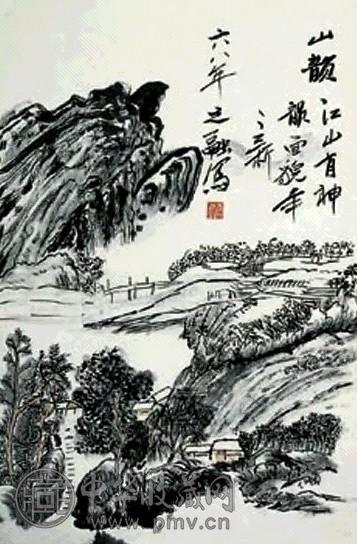 山韻 江山有神
韻画貌年
々新
六八年之融写
中华收藏网
www.pmv.cn